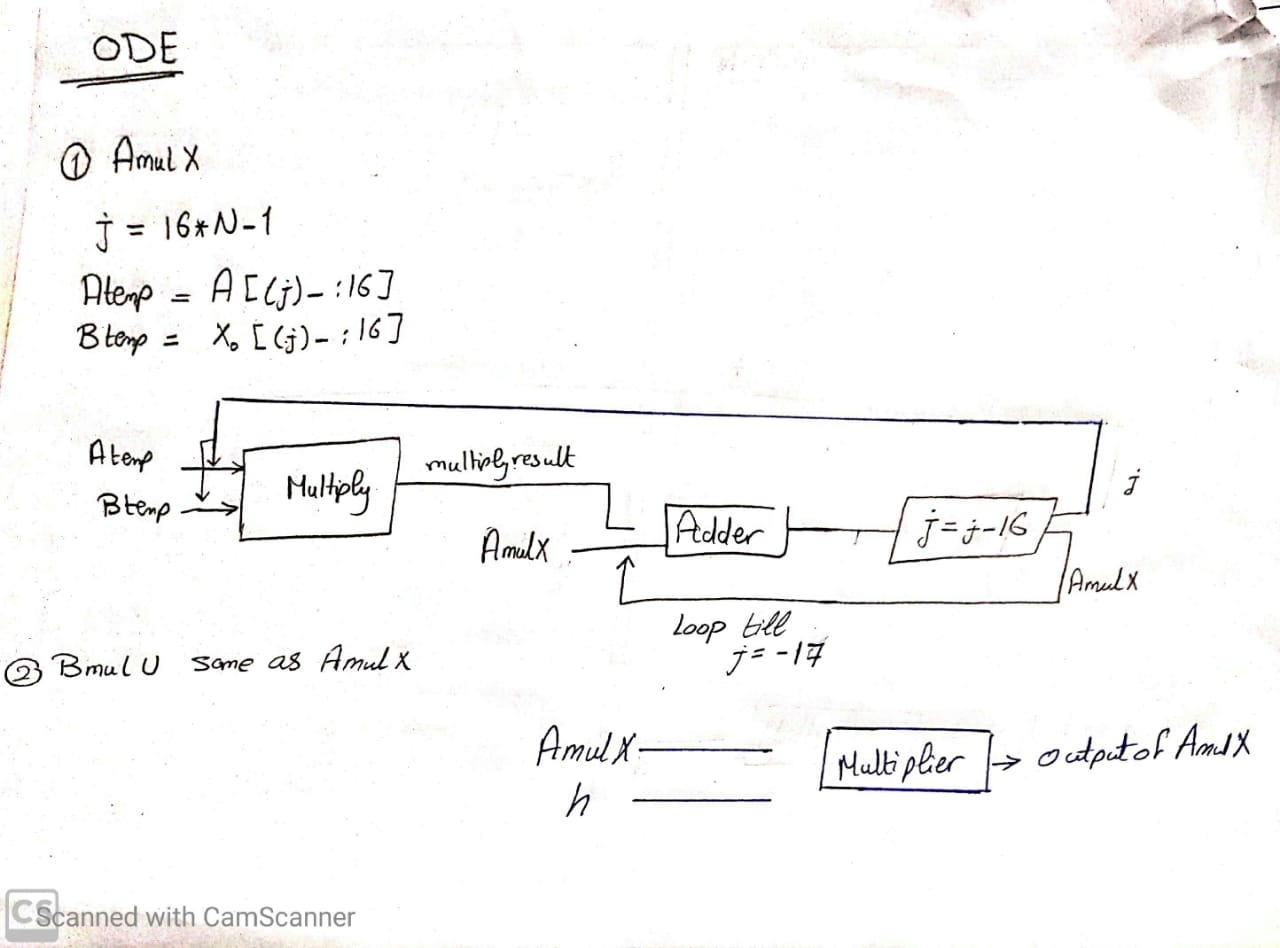 ODE
① Amul X
j = 16*N-1
Atemp = A[(j)-:16]
Btemp = X₀[(j)-:16]
Atemp
Btemp
Multiply
multiplyresult
AmulX
Adder
j=j-16
j
AmulX
Loop till
j=-17
② BmulU same as AmulX
AmulX
h
Multiplier → output of AmulX
CS Scanned with CamScanner